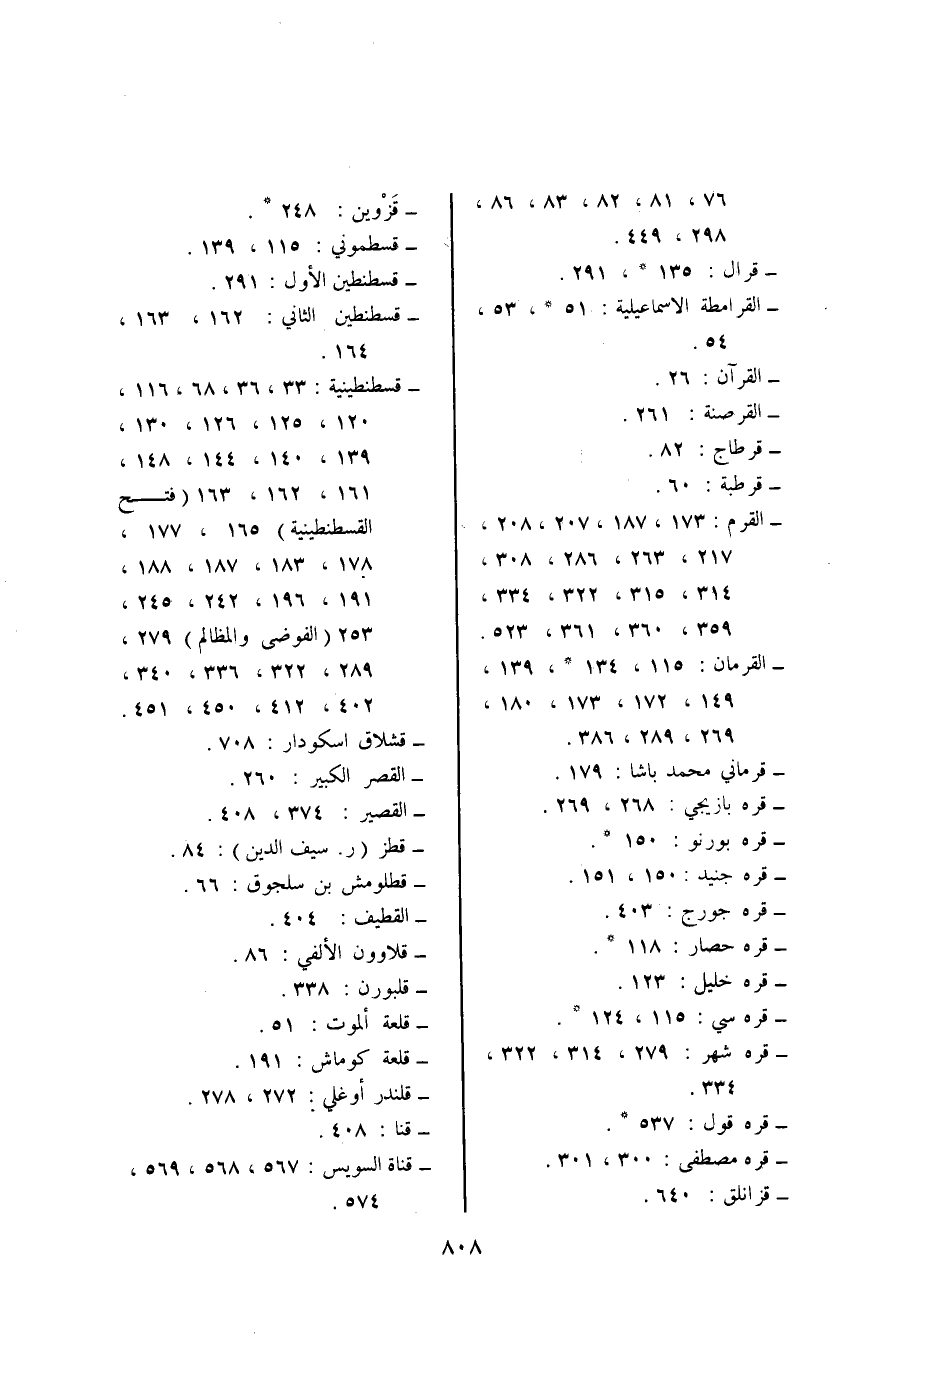 ٧٦ ، ٨١ ، ٨٢ ، ٨٣ ، ٨٦ ،
٢٩٨ ، ٤٤٩ .
ـ قرال : ١٣٥ * ، ٢٩١ .
ـ القرامطة الاسماعيلية : ٥١ * ، ٥٣ ،
٥٤ .
ـ القرآن : ٢٦ .
ـ القرصنة : ٢٦١ .
ـ قرطاج : ٨٢ .
ـ قرطبة : ٦٠ .
ـ القرم : ١٧٣ ، ١٨٧ ، ٢٠٧ ، ٢٠٨ ،
٢١٧ ، ٢٦٣ ، ٢٨٦ ، ٣٠٨ ،
٣١٤ ، ٣١٥ ، ٣٢٢ ، ٣٣٤ ،
٣٥٩ ، ٣٦٠ ، ٣٦١ ، ٥٢٣ .
ـ القرمان : ١١٥ ، ١٣٤ * ، ١٣٩ ،
١٤٩ ، ١٧٢ ، ١٧٣ ، ١٨٠ ،
٢٦٩ ، ٢٨٩ ، ٣٨٦ .
ـ قرماني محمد باشا : ١٧٩ .
ـ قره بازيجي : ٢٦٨ ، ٢٦٩ .
ـ قره بورنو : ١٥٠ * .
ـ قره جنيد : ١٥٠ ، ١٥١ .
ـ قره جورج : ٤٠٣ .
ـ قره حصار : ١١٨ * .
ـ قره خليل : ١٢٣ .
ـ قره سي : ١١٥ ، ١٢٤ * .
ـ قره شهر : ٢٧٩ ، ٣١٤ ، ٣٢٢ ،
٣٣٤ .
ـ قره قول : ٥٣٧ * .
ـ قره مصطفى : ٣٠٠ ، ٣٠١ .
ـ قزانلق : ٦٤٠ .
ـ قَزْوين : ٢٤٨ * .
ـ قسطموني : ١١٥ ، ١٣٩ .
ـ قسطنطين الأول : ٢٩١ .
ـ قسطنطين الثاني : ١٦٢ ، ١٦٣ ،
١٦٤ .
ـ قسطنطينية : ٣٣ ، ٣٦ ، ٦٨ ، ١١٦ ،
١٢٠ ، ١٢٥ ، ١٢٦ ، ١٣٠ ،
١٣٩ ، ١٤٠ ، ١٤٤ ، ١٤٨ ،
١٦١ ، ١٦٢ ، ١٦٣ ( فتـــح
القسطنطينية ) ١٦٥ ، ١٧٧ ،
١٧٨ ، ١٨٣ ، ١٨٧ ، ١٨٨ ،
١٩١ ، ١٩٦ ، ٢٤٢ ، ٢٤٥ ،
٢٥٣ ( الفوضى والمظالم ) ٢٧٩ ،
٢٨٩ ، ٣٢٢ ، ٣٣٦ ، ٣٤٠ ،
٤٠٢ ، ٤١٢ ، ٤٥٠ ، ٤٥١ .
ـ قشلاق اسكودار : ٧٠٨ .
ـ القصر الكبير : ٢٦٠ .
ـ القصير : ٣٧٤ ، ٤٠٨ .
ـ قطز ( ر. سيف الدين ) : ٨٤ .
ـ قطلومش بن سلجوق : ٦٦ .
ـ القطيف : ٤٠٤ .
ـ قلاوون الألفي : ٨٦ .
ـ قلبورن : ٣٣٨ .
ـ قلعة ألموت : ٥١ .
ـ قلعة كوماش : ١٩١ .
ـ قلندر أوغلي : ٢٧٢ ، ٢٧٨ .
ـ قنا : ٤٠٨ .
ـ قناة السويس : ٥٦٧ ، ٥٦٨ ، ٥٦٩ ،
٥٧٤ .
٨٠٨